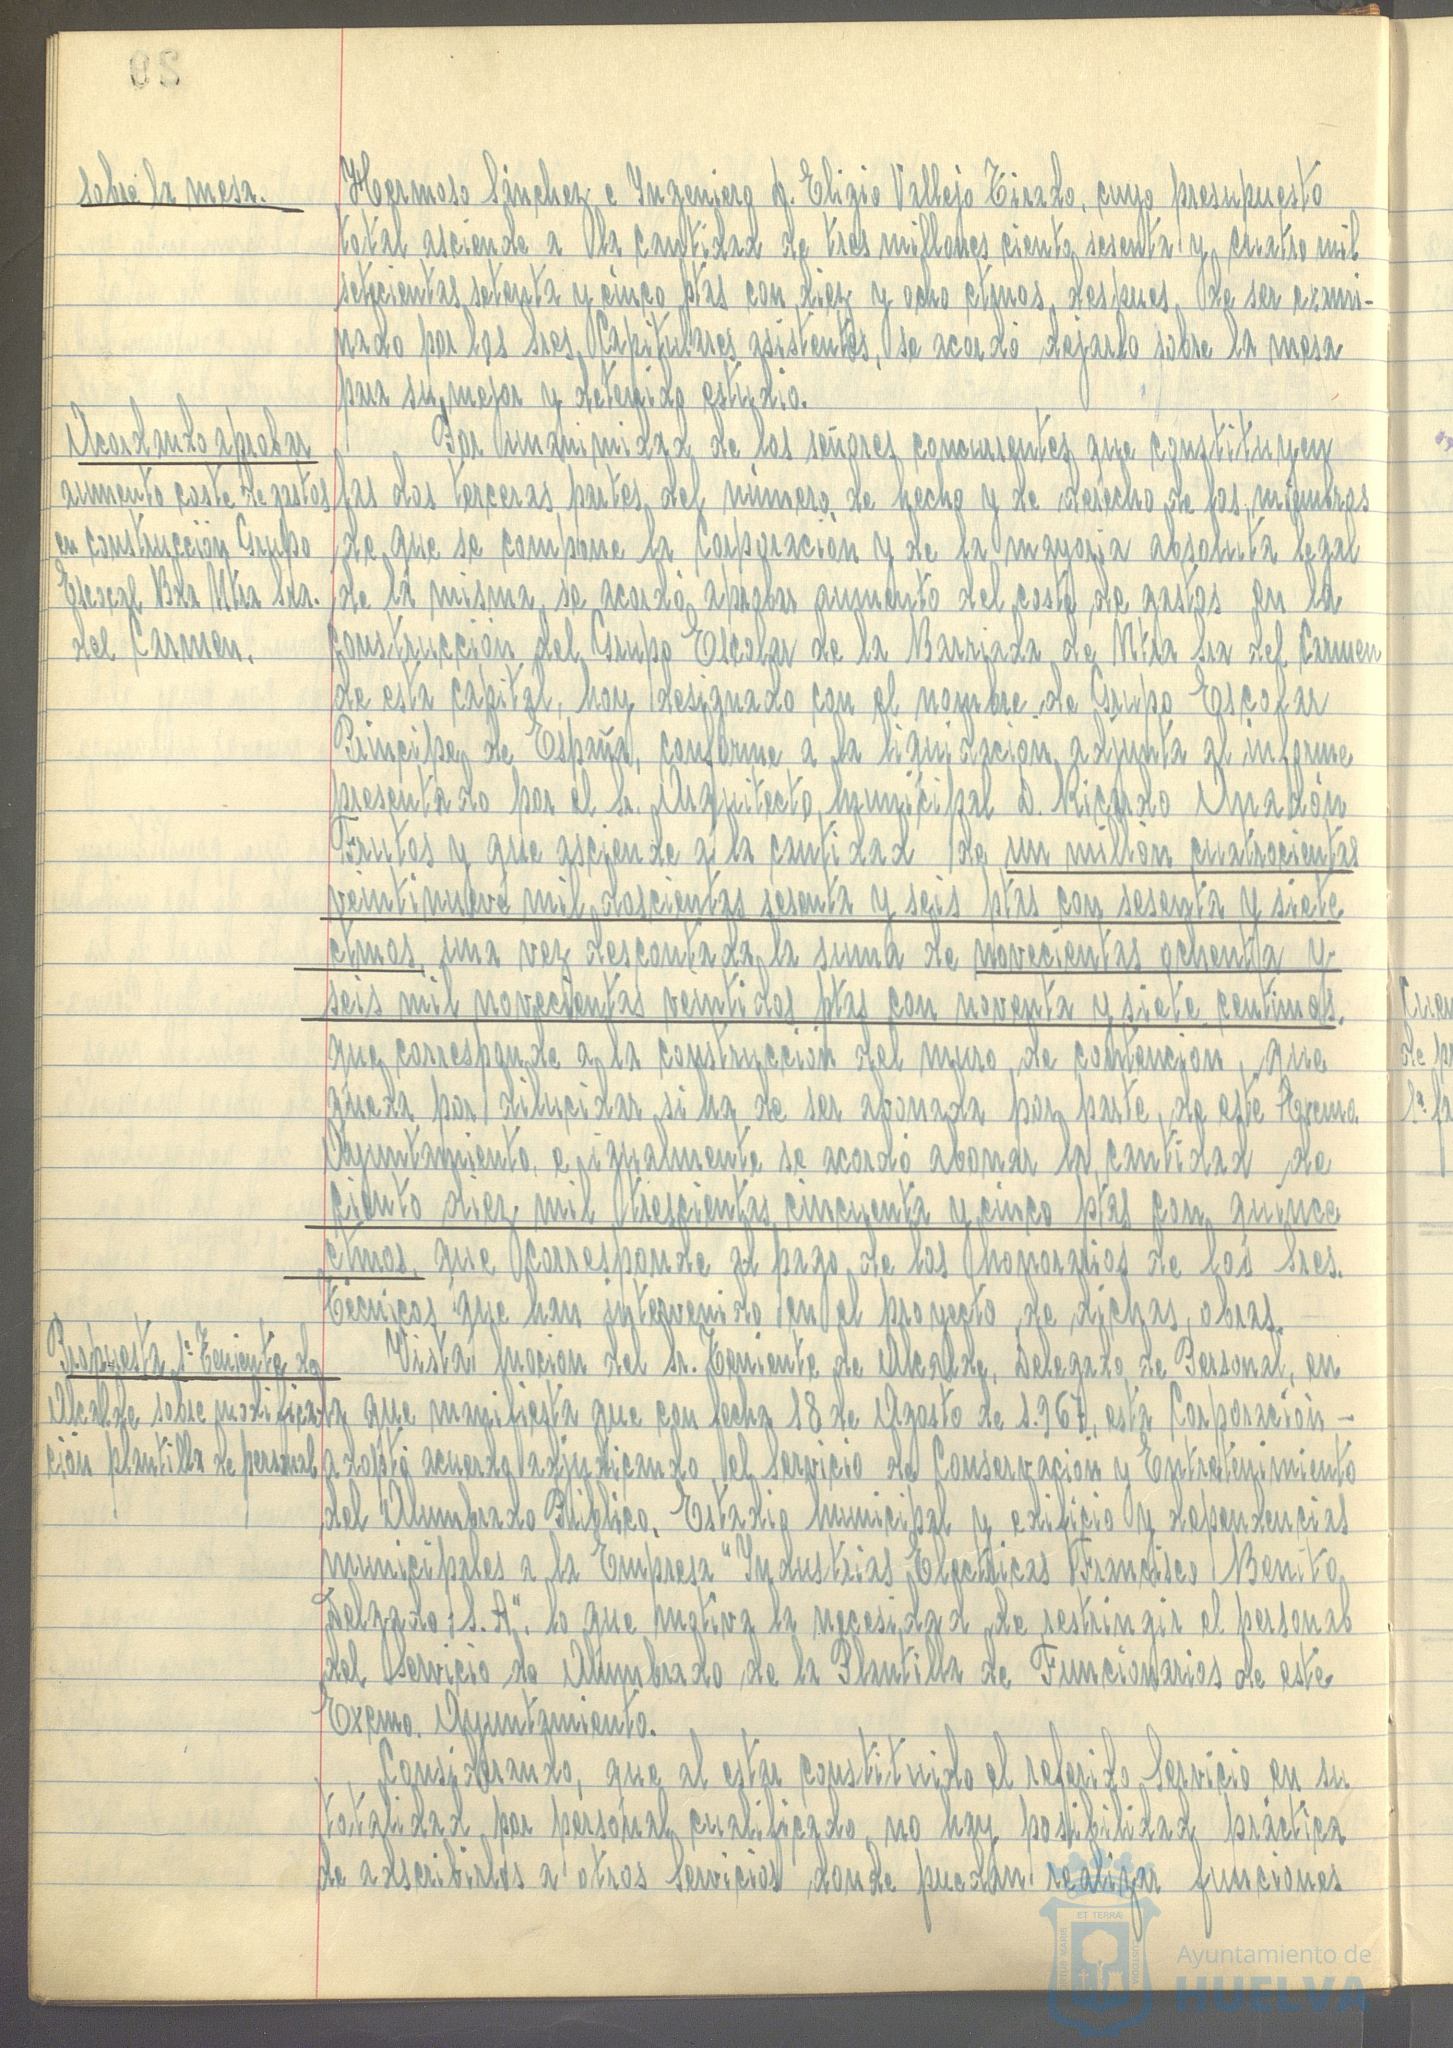 sobre la mesa.
Hermoso Sánchez e Ingeniero D. Eligio Vallejo Tirado, cuyo presupuesto
total asciende a la cantidad de tres millones ciento sesenta y cuatro mil
setecientas setenta y cinco ptas con diez y ocho ctmos, despues de ser exami-
nado por los Sres. Capitulares asistentes, se acordó dejarlo sobre la mesa
para su mejor y detenido estudio.
Acordando aprobar
aumento coste de gastos
en construcción Grupo
Escolar Bda Ntra Sra.
del Carmen.
Por unanimidad de los señores concurrentes que constituyen
las dos terceras partes del número de hecho y de derecho de los miembros
de que se compone la Corporación y de la mayoría absoluta legal
de la misma, se acordó aprobar aumento del coste de gastos en la
construcción del Grupo Escolar de la Barriada de Ntra Sra del Carmen
de esta capital, hoy designado con el nombre de Grupo Escolar
Principe de España, conforme a la liquidación adjunta al informe
presentado por el Sr. Arquitecto Municipal D. Ricardo Anadón
Frutos y que asciende a la cantidad de un millón cuatrocientas
veintinueve mil doscientas sesenta y seis ptas con sesenta y siete
ctmos, una vez descontada la suma de novecientas ochenta y
seis mil novecientas veintidos ptas con noventa y siete centimos,
que corresponde a la construcción del muro de contencion, que
queda por dilucidar si ha de ser abonada por parte de este Excmo
Ayuntamiento, e igualmente se acordó abonar la cantidad de
ciento diez mil trescientas cincuenta y cinco ptas con quince
ctmos, que corresponde al pago de los honorarios de los Sres.
Técnicos que han intervenido en el proyecto de dichas obras.
Propuesta 1º Teniente de
Alcalde sobre modifica
ción plantilla de personal
Vista moción del Sr. Teniente de Alcalde, Delegado de Personal, en
la que manifiesta que con fecha 18 de Agosto de 1.967, esta Corporación -
adoptó acuerdo adjudicando el Servicio de Conservación y Entretenimiento
del Alumbrado Público, Estadio Municipal y edificio y dependencias
municipales a la Empresa "Industrias Electricas Francisco Benito
Delgado, S.A", lo que motiva la necesidad de restringir el personal
del Servicio de Alumbrado de la Plantilla de Funcionarios de este
Excmo. Ayuntamiento.
Considerando, que al estar constituido el referido Servicio en su
totalidad por personal cualificado, no hay posibilidad práctica
de adscribirlos a otros Servicios donde puedan realizar funciones
ET TERRAE
Ayuntamiento de
HUELVA